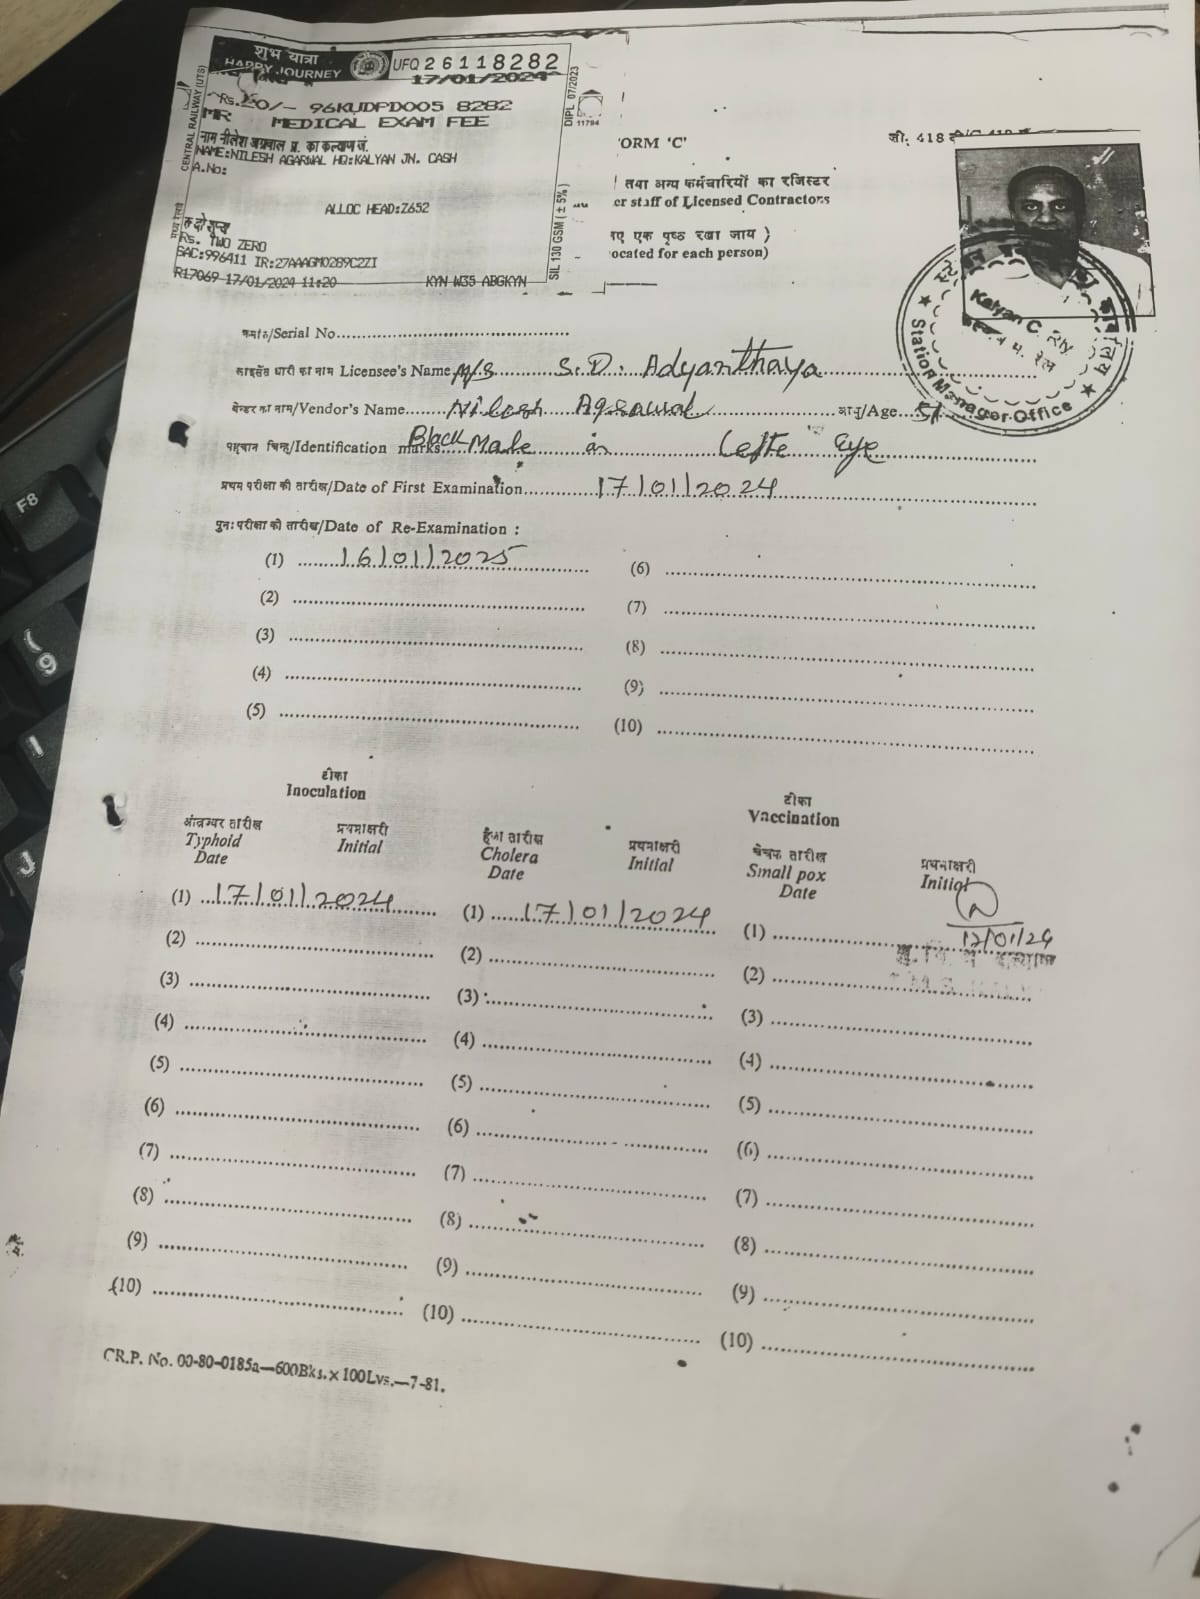 शुभ यात्रा
HAPPY JOURNEY
UFQ 26118282
17/01/2024
CENTRAL RAILWAY (UTS)
मध्य रेलवे
DIPL 07/2023
11794
SIL 130 GSM (± 5%)
Rs.20/- 96KUDFD005 8282
MR MEDICAL EXAM FEE
नाम नीलेश अग्रवाल प्र. का कल्याण जं.
NAME:NILESH AGARWAL HQ:KALYAN JN. CASH
A.No:
ALLOC HEAD:Z652
रु दो शून्य
Rs. TWO ZERO
SAC:996411 IR:27AAAGM0289C2ZI
R17069 17/01/2024 11:20 KYN W35 ABGKYN
जी. 418
ORM 'C'
तथा अन्य कर्मचारियों का रजिस्टर
er staff of Licensed Contractors
एक पृष्ठ रखा जाय )
ocated for each person)
Kalyan C. Rly
Station Manager Office
क्रमांक/Serial No.
लाइसेंस धारी का नाम Licensee's Name M/S S.D. Adyanthaya
वेन्डर का नाम/Vendor's Name Nilesh Agrawal आयु/Age 51
पहचान चिन्ह/Identification marks Black Male in Lefte Eye
प्रथम परीक्षा की तारीख/Date of First Examination 17/01/2024
पुनः परीक्षा की तारीख/Date of Re-Examination :
(1) 16/01/2025 (6)
(2) (7)
(3) (8)
(4) (9)
(5) (10)
टीका
Inoculation
टीका
Vaccination
तारीख प्रथमाक्षरी हैजा तारीख प्रथमाक्षरी चेचक तारीख प्रथमाक्षरी
Typhoid Initial Cholera Initial Small pox Initial
Date Date Date
(1) 17/01/2024 (1) 17/01/2024 (1) 17/01/24
(2) (2) (2)
(3) (3) (3)
(4) (4) (4)
(5) (5) (5)
(6) (6) (6)
(7) (7) (7)
(8) (8) (8)
(9) (9) (9)
(10) (10) (10)
CR.P. No. 00-80-0185a—600Bks.×100Lvs.—7-81.